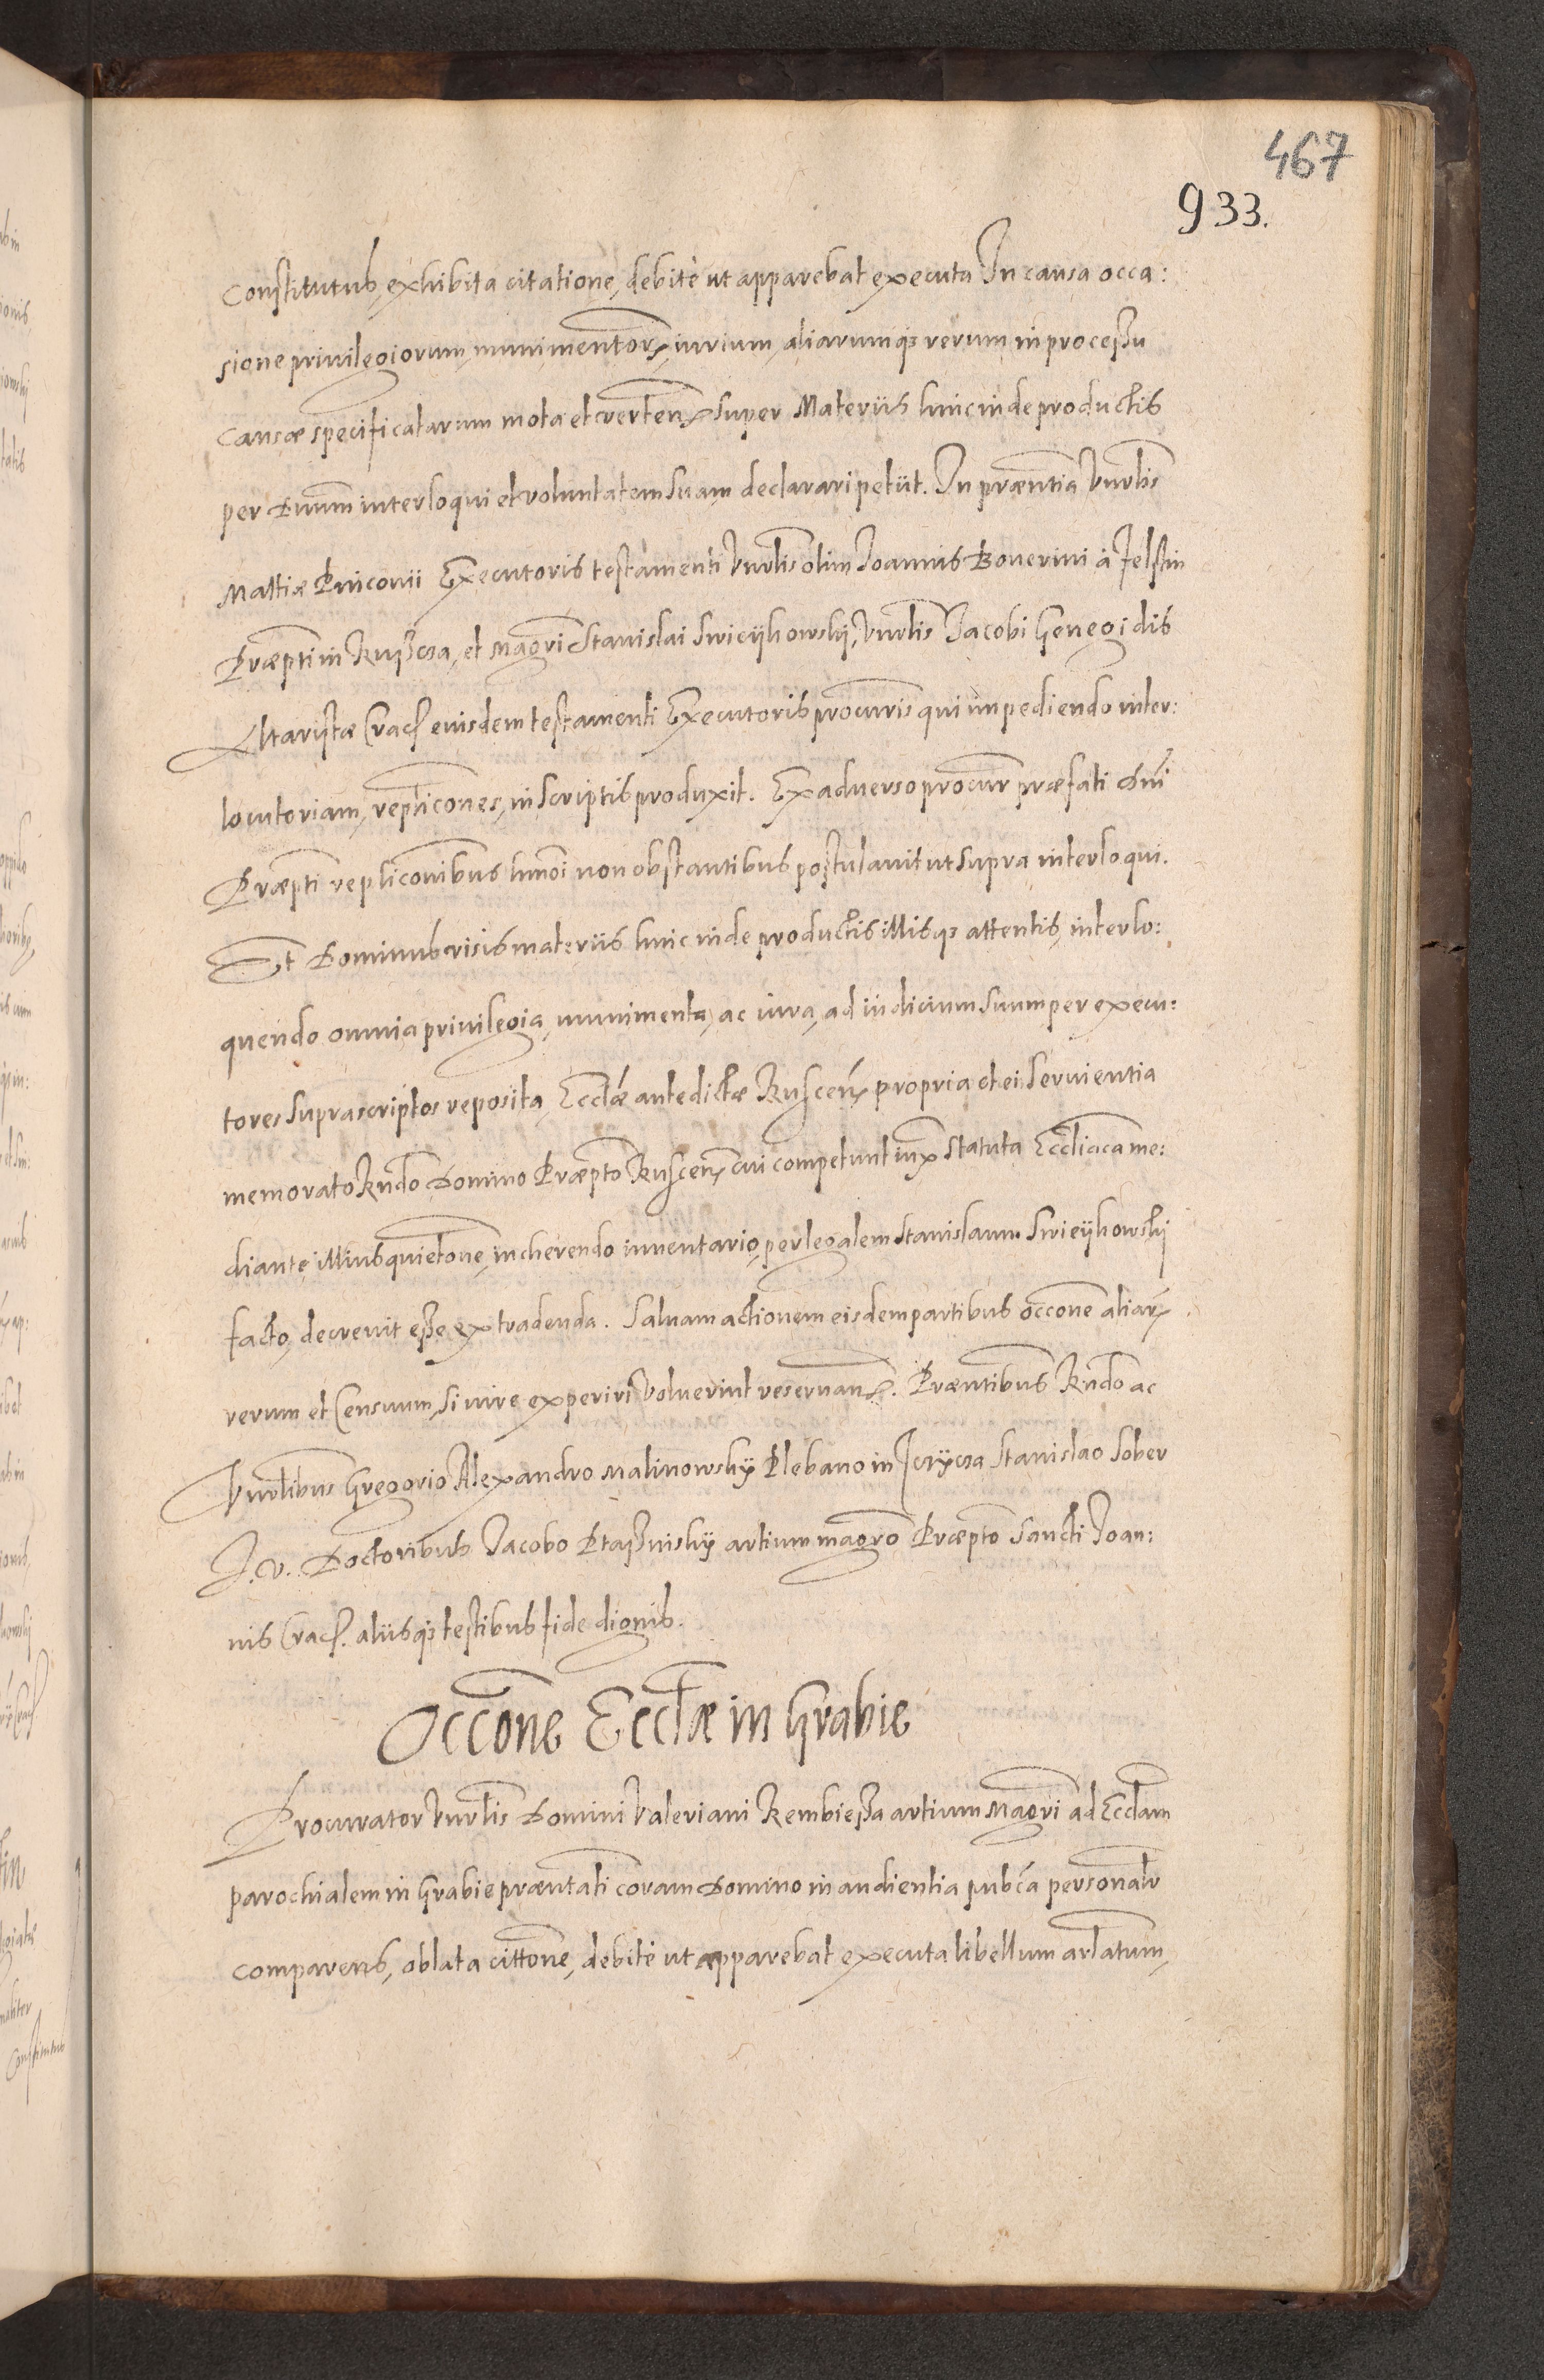 467
933.
Constitutus, exhibita citatione, debite ut apparebat executa In causa occa:
sione priuilegiorum, munimentorꝝ, iurium, aliarumqꝫ rerum in processu
Causæ specificatarum mota et verteñ super Materiis hinc inde productis
per Dnum̄ interloqui et voluntatem suam declarari petiit. In præntia Vnrlis
Mattiæ Executoris testamenti Vnrlis olim Joannis Bouerini à Jelstin
Præpti in Ruszcza, et Magri Stanislai Swieÿkowskÿ, Vnrlis Jacobi Genegidis
Altaristæ Crac̄ eiusdem testamenti Executoris procuris qui impediendo inter:
locutoriam, replicones, in scriptis produxit. Ex aduerso procur præfati Dni
Præpti repliconibus hmoi non obstantibus postulauit ut supra interloqui.
Et Dominus visis materiis hinc inde productis illisqꝫ attentis, interlo:
quendo omnia priuilegia, munimenta, ac iura, ad iudicium suum per execu:
tores suprascriptos reposita, Ecclæ antedictæ Rusceñ propria et ei seruientia
memorato Rndo Domino Præpto Rusceñ cui competunt iux̄ statuta Eccliaca me:
diante illius quietone, inherendo inuentario, per legalem Stanislaum Swieÿkowski
facto, decreuit esse extradenda. Saluam actionem eisdem partibus occone aliarꝝ
rerum et Censuum, si iure experiri voluerint reseruañ. Præntibus Rndo ac
Vnrlibus Gregorio Alexandro Malinowskÿ Plebano in Stanislao Sober
J. V. Doctoribus Jacobo artium magro Præpto Sancti Joan:
nis Crac̄. aliisqꝫ testibus fide dignis.
Occone Ecclæ in Grabie
Procurator Vnrlis Domini Valeriani Rembiesza artium Magri ad Ecclam
parochialem in Grabie præntati coram Domino in audientia pubca personalr
comparens, oblata cittone, debite ut apparebat executa libellum arlatum,